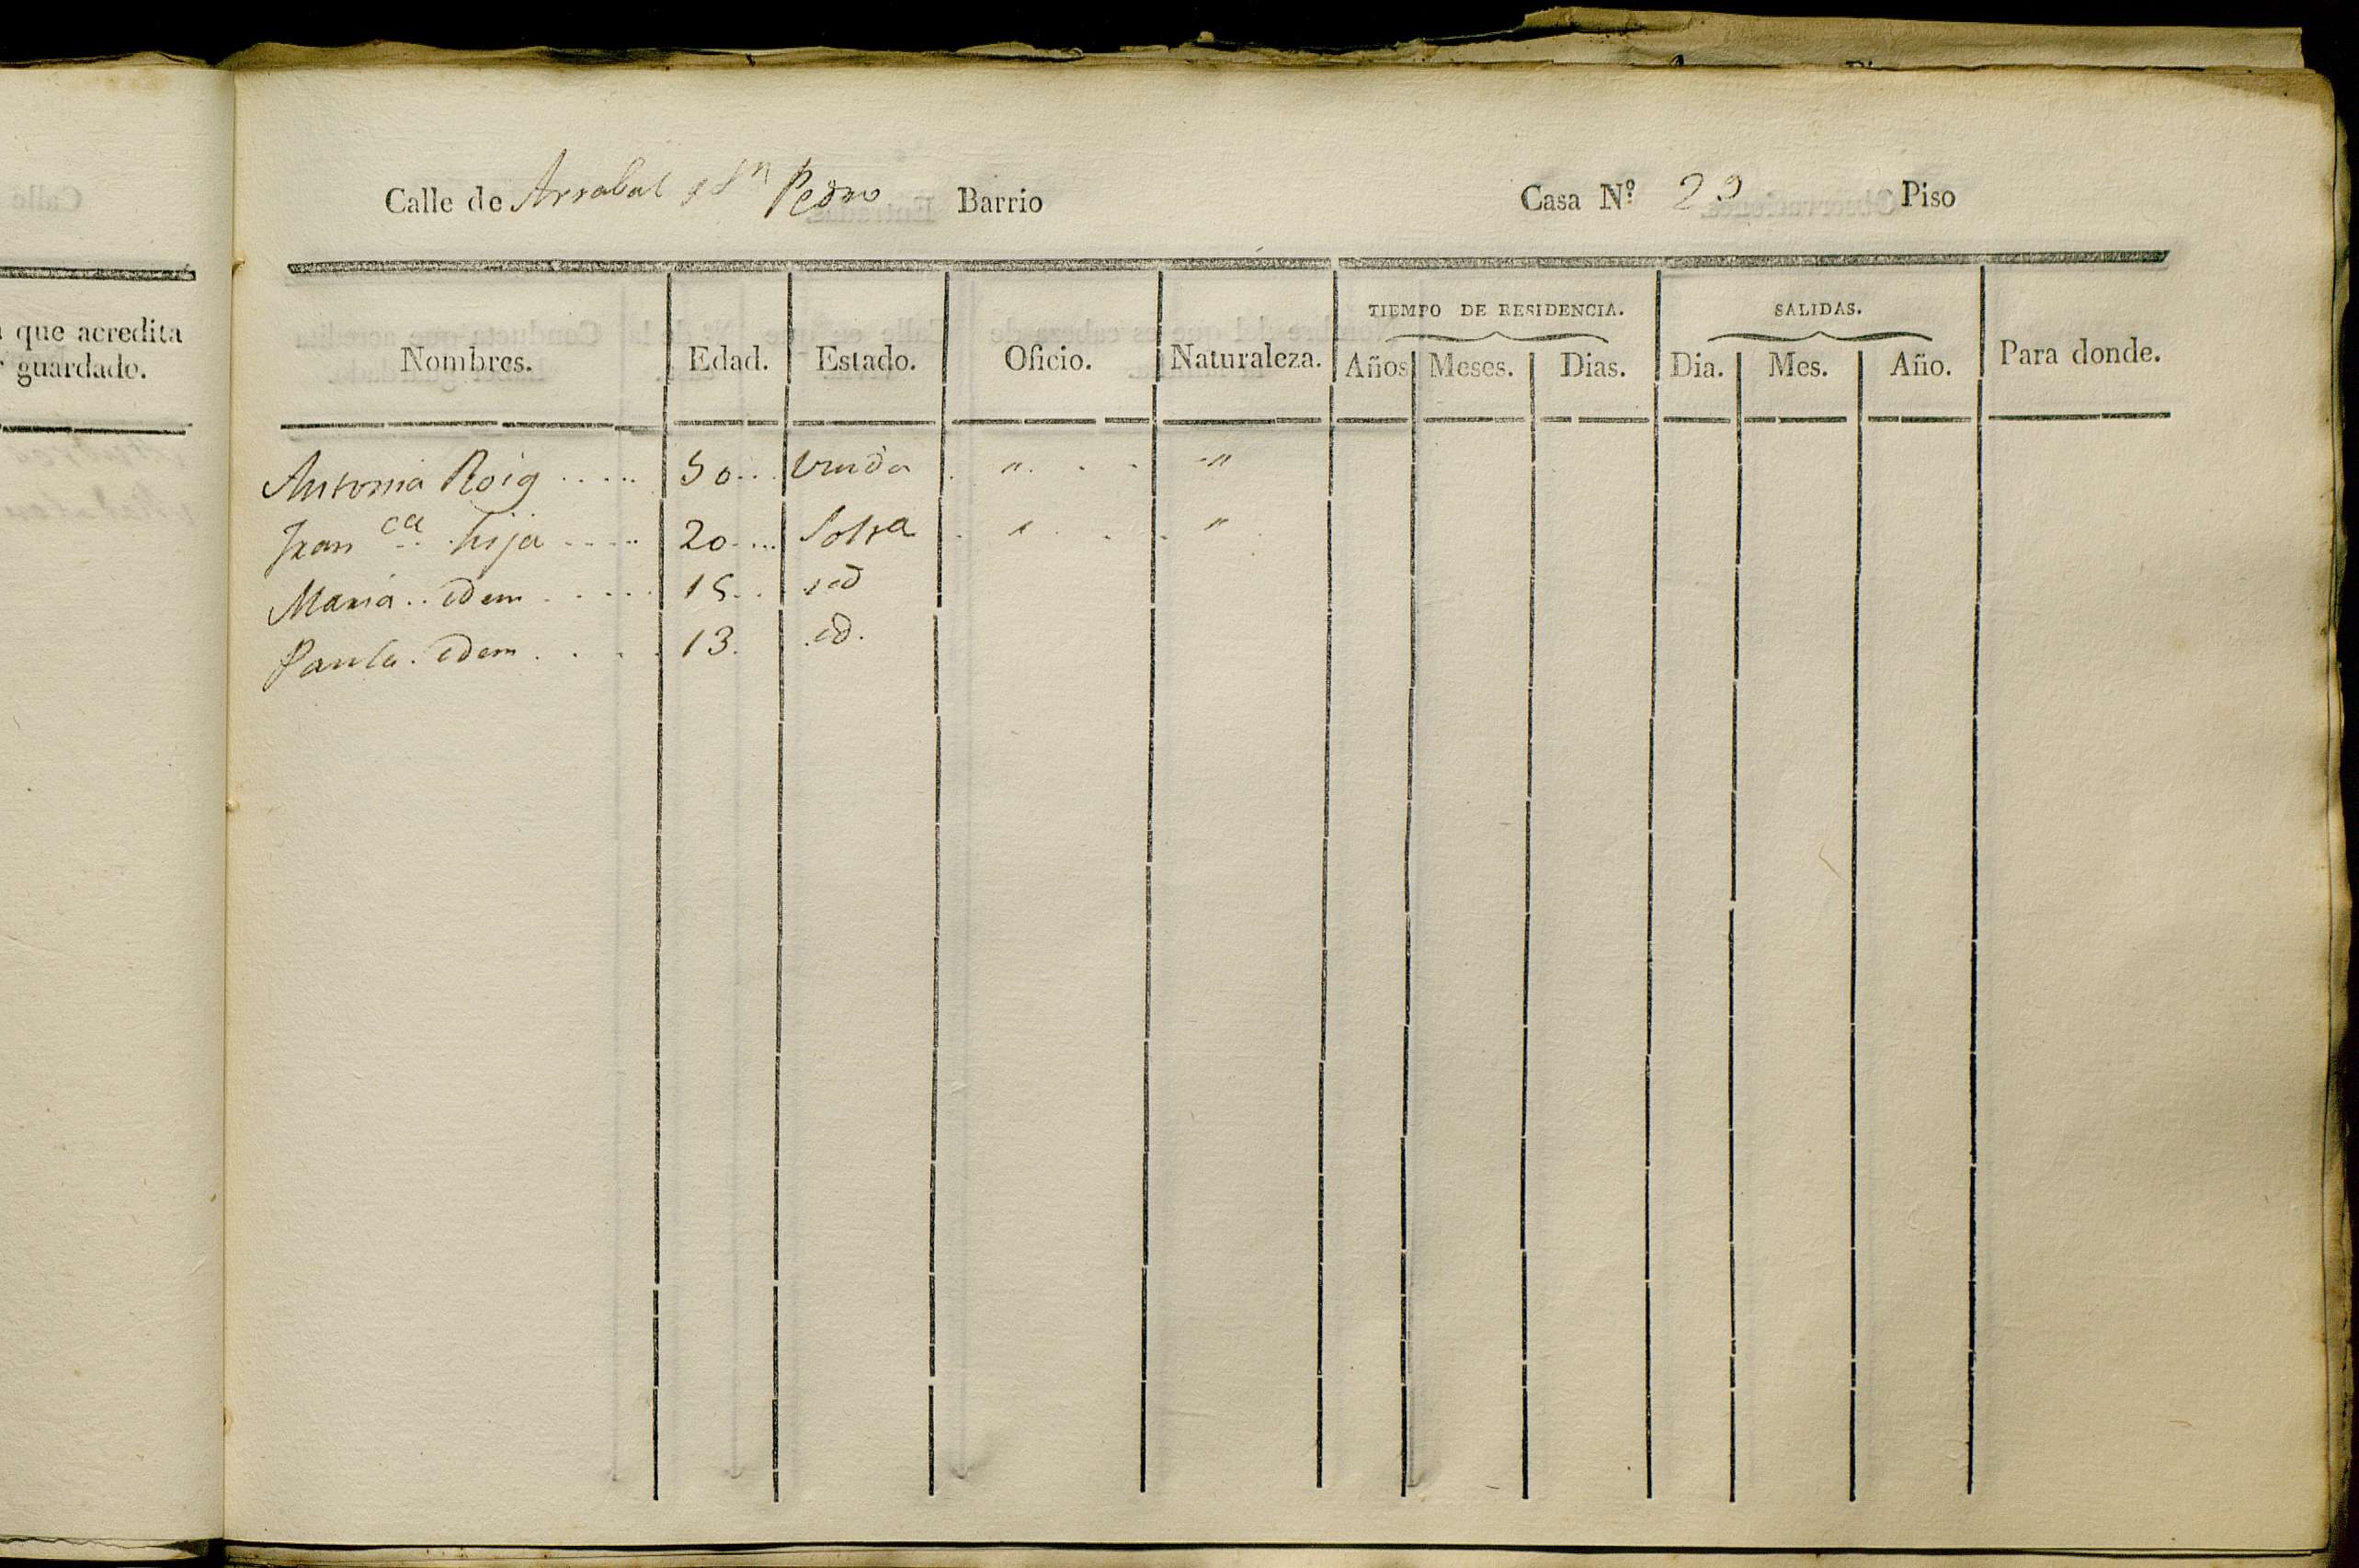 que acredita
guardado.
Calle de Arrabal Sn Pedro Barrio Casa Nº 29 Piso
TIEMPO DE RESIDENCIA. SALIDAS.
Nombres. Edad. Estado. Oficio. Naturaleza. Años Meses. Dias. Dia. Mes. Año. Para donde.
Antonia Roig ..... 50... Viuda . " . . "
Franca hija ..... 20.... Soltra . " . . "
Maria .. idem ..... 15 .. id
Paula . idem .... 13. id.